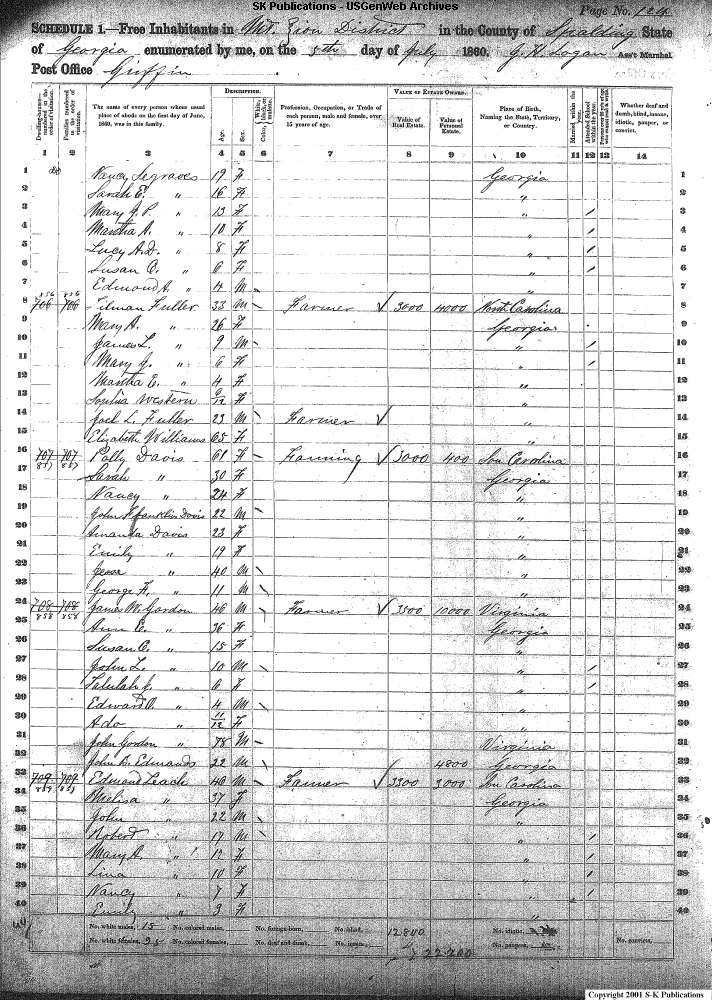 SK Publications - USGenWeb Archives
Page No. 124
SCHEDULE 1.—Free Inhabitants in Mt. Zion District in the County of Spalding State
of Georgia enumerated by me, on the 5th day of July 1860. J. H. Logan Ass't Marshal
Post Office Griffin
Dwelling-houses numbered in the order of visitation. Families numbered in the order of visitation. The name of every person whose usual place of abode on the first day of June, 1860, was in this family. DESCRIPTION. Age. Sex. Color, White, black, or mulatto. Profession, Occupation, or Trade of each person, male and female, over 15 years of age. VALUE OF ESTATE OWNED. Value of Real Estate. Value of Personal Estate. Place of Birth, Naming the State, Territory, or Country. Married within the year. Attended School within the year. Whether deaf and dumb, blind, insane, idiotic, pauper, or convict.
1 2 3 4 5 6 7 8 9 10 11 12 13 14
1 Nancy Segraves 19 F Georgia 1
2 Sarah E. " 16 F " 2
3 Mary J. P. " 13 F " / 3
4 Martha A. " 10 F / 4
5 Lucy A.D. " 8 F " / 5
6 Susan C. " 6 F " / 6
7 Edmond A. " 4 M " 7
8 706 706 Tilman Fuller 33 M Farmer 3000 4000 North Carolina 8
9 Mary A. " 26 F Georgia 9
10 James L. " 9 M " / 10
11 Mary J. " 6 F " / 11
12 Martha E. " 4 F " 12
13 Sophia Western 9/12 F " 13
14 Joel L. Fuller 23 M Farmer 14
15 Elizabeth Williams 65 F " 15
16 707 707 Polly Davis 61 F Farming 3000 400 Sou Carolina 16
17 857 857 Sarah " 30 F Georgia 17
18 Nancy " 24 F " 18
19 John Franklin Davis 22 M " 19
20 Amanda Davis 23 F " 20
21 Emily " 19 F " 21
22 Jesse " 40 M " 22
23 George F. " 11 M " 23
24 708 708 James W. Gordon 46 M Farmer 3500 10000 Virginia 24
25 858 858 Ann E. " 36 F Georgia 25
26 Susan C. " 15 F " 26
27 John L. " 10 M " / 27
28 Talulah J. " 6 F " / 28
29 Edward O. " 4 M " 29
30 Ada " 11/12 F " 30
31 John Gordon " 78 M Virginia 31
32 John B. Edmonds 22 M 4800 Georgia 32
33 709 709 Edmond Leach 40 M Farmer 3300 3000 Sou Carolina 33
34 Melisa " 37 F Georgia 34
35 John " 22 M " 35
36 Robert " 17 M " / 36
37 Mary A. " 12 F " / 37
38 Lina " 10 F " / 38
39 Nancy " 7 F " / 39
40 Emily " 3 F " 40
No. white males, 15 No. colored males, No. foreign-born, No. blind, 12800 No. idiotic,
No. white females, 25 No. colored females, No. deaf and dumb, No. insane, 22200 No. paupers, No. convicts,
Copyright 2001 S-K Publications